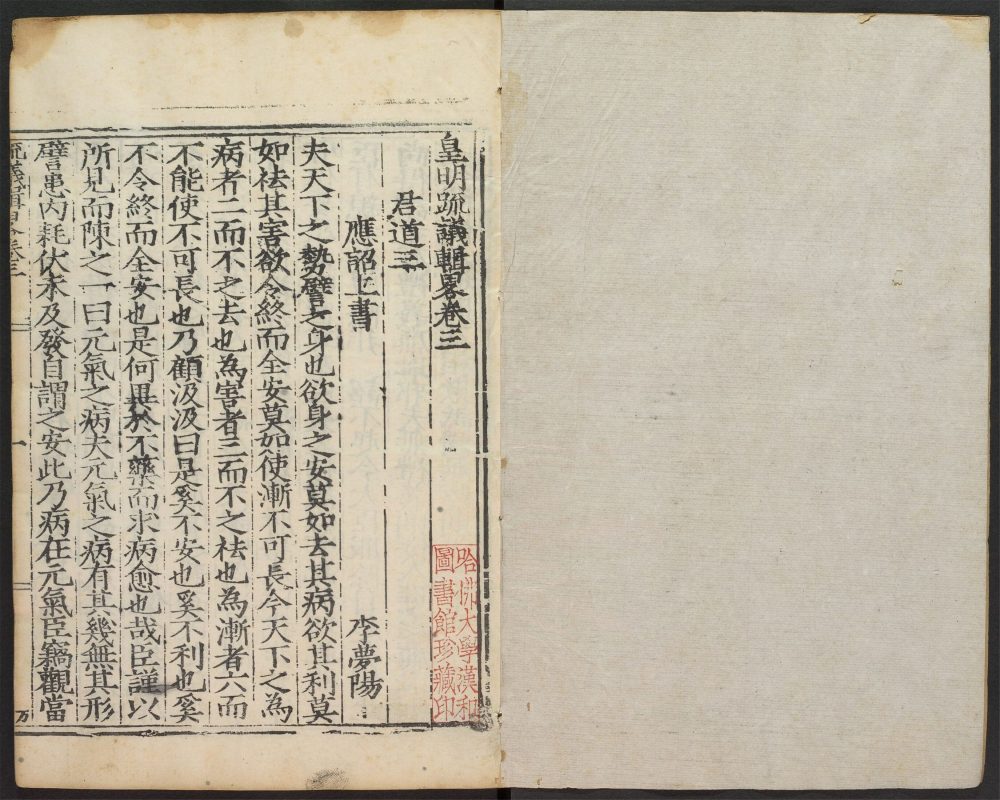 皇明疏議輯畧卷三
君道三
應詔上書
李夢陽
夫天下之勢譬之身也欲身之安莫如去其病欲其利莫
如祛其害欲令終而全安莫如使漸不可長今天下之為
病者二而不之去也為害者三而不之祛也為漸者六而
不能使不可長也乃顧汲汲曰是奚不安也奚不利也奚
不令終而全安也是何異於不藥而求病愈也哉臣謹以
所見而陳之一曰元氣之病夫元氣之病有其幾無其形
譬患內耗伏未及發自謂之安此乃病在元氣臣竊觀當
疏議輯畧卷三
一
万
哈佛大學漢和
圖書館珍藏印